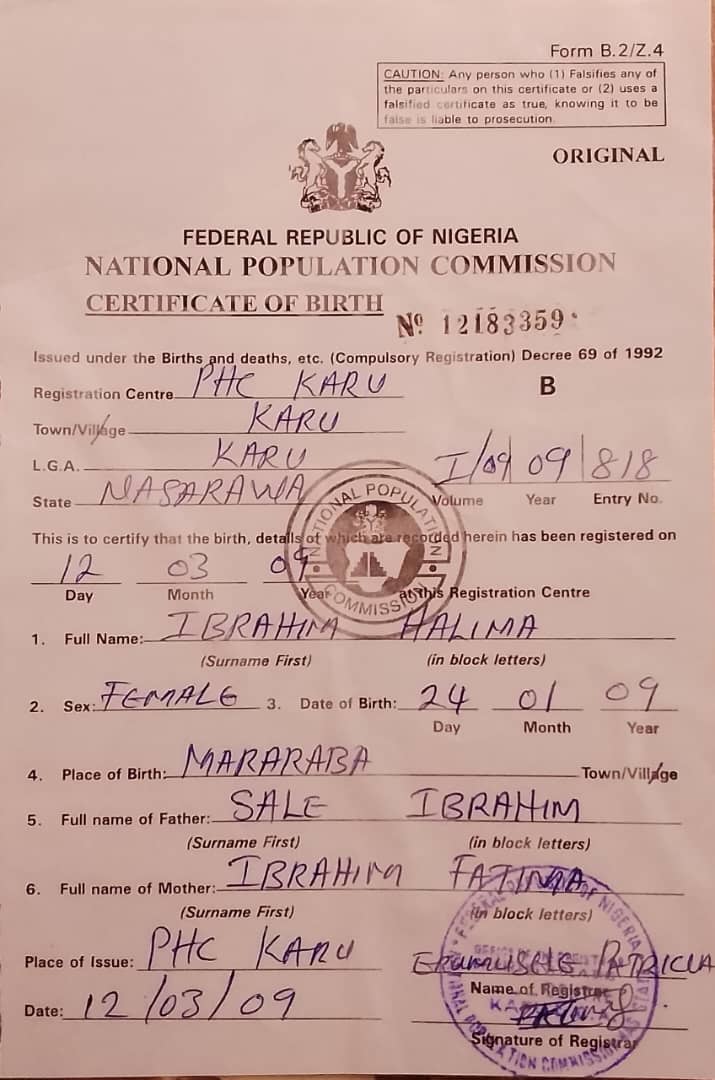 Form B.2/Z.4
CAUTION: Any person who (1) Falsifies any of
the particulars on this certificate or (2) uses a
falsified certificate as true, knowing it to be
false is liable to prosecution.
ORIGINAL
FEDERAL REPUBLIC OF NIGERIA
NATIONAL POPULATION COMMISSION
CERTIFICATE OF BIRTH
Nº 12183359
Issued under the Births and deaths, etc. (Compulsory Registration) Decree 69 of 1992
Registration Centre PHC KARU B
Town/Village KARU
L.G.A. KARU I/09 09 818
State NASARAWA Volume Year Entry No.
NATIONAL POPULATION COMMISSION
This is to certify that the birth, details of which are recorded herein has been registered on
12 03 09
Day Month Year at this Registration Centre
1. Full Name: IBRAHIM HALIMA
(Surname First) (in block letters)
2. Sex: FEMALE 3. Date of Birth: 24 01 09
Day Month Year
4. Place of Birth: MARARABA Town/Village
5. Full name of Father: SALE IBRAHIM
(Surname First) (in block letters)
6. Full name of Mother: IBRAHIM FATIMA
(Surname First) (in block letters)
Place of Issue: PHC KARU PATRICIA
Name of Registrar
Date: 12/03/09
Signature of Registrar